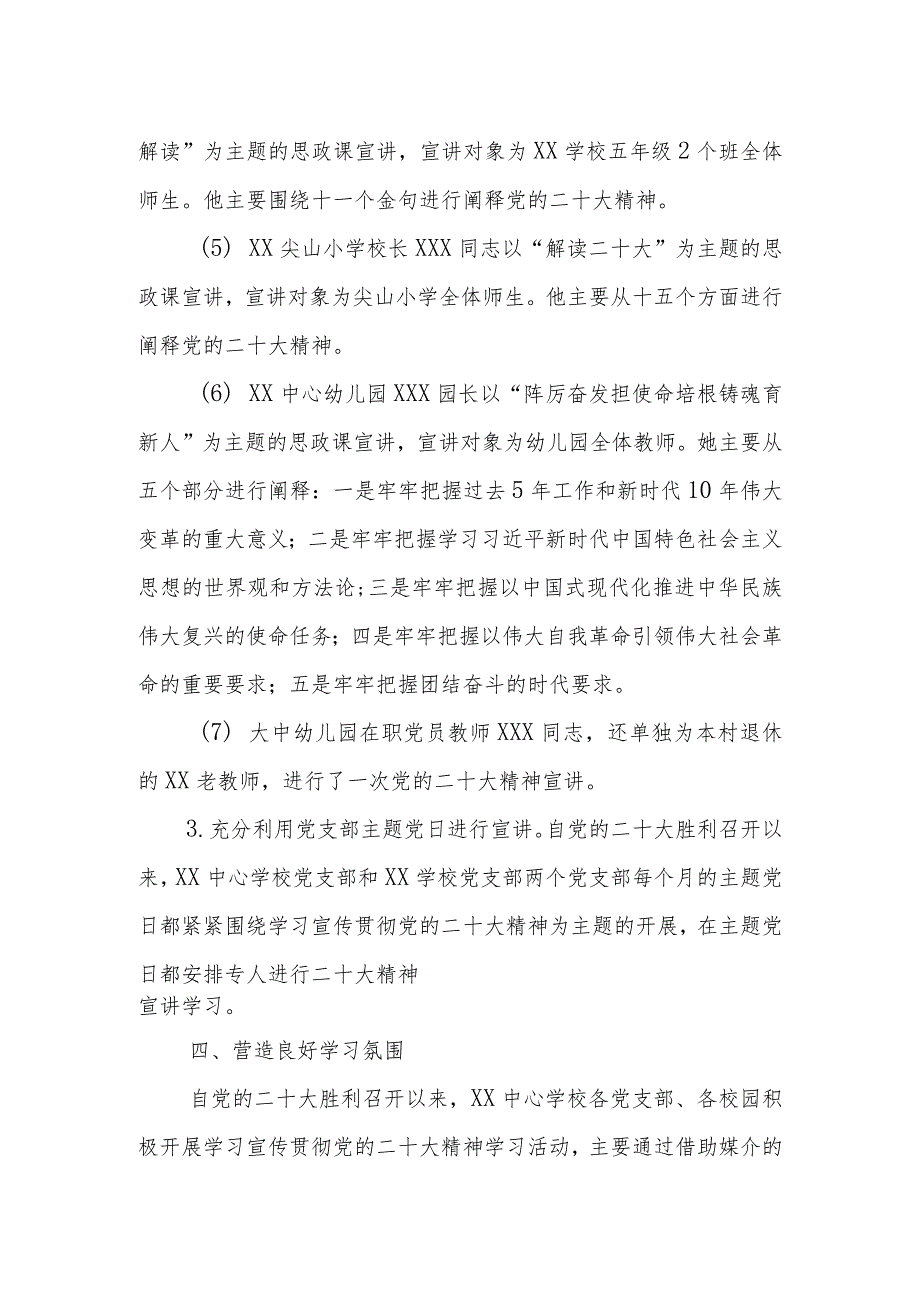 解读”为主题的思政课宣讲，宣讲对象为XX学校五年级2个班全体
师生。他主要围绕十一个金句进行阐释党的二十大精神。
(5) XX尖山小学校长XXX同志以“解读二十大”为主题的思
政课宣讲，宣讲对象为尖山小学全体师生。他主要从十五个方面进行
阐释党的二十大精神。
(6) XX中心幼儿园XXX园长以“阵厉奋发担使命培根铸魂育
新人”为主题的思政课宣讲，宣讲对象为幼儿园全体教师。她主要从
五个部分进行阐释：一是牢牢把握过去5年工作和新时代10年伟大
变革的重大意义；二是牢牢把握学习习近平新时代中国特色社会主义
思想的世界观和方法论;三是牢牢把握以中国式现代化推进中华民族
伟大复兴的使命任务；四是牢牢把握以伟大自我革命引领伟大社会革
命的重要要求；五是牢牢把握团结奋斗的时代要求。
(7) 大中幼儿园在职党员教师XXX同志，还单独为本村退休
的XX老教师，进行了一次党的二十大精神宣讲。
3.充分利用党支部主题党日进行宣讲。自党的二十大胜利召开以
来，XX中心学校党支部和XX学校党支部两个党支部每个月的主题党
日都紧紧围绕学习宣传贯彻党的二十大精神为主题的开展，在主题党
日都安排专人进行二十大精神
宣讲学习。
四、营造良好学习氛围
自党的二十大胜利召开以来，XX中心学校各党支部、各校园积
极开展学习宣传贯彻党的二十大精神学习活动，主要通过借助媒介的